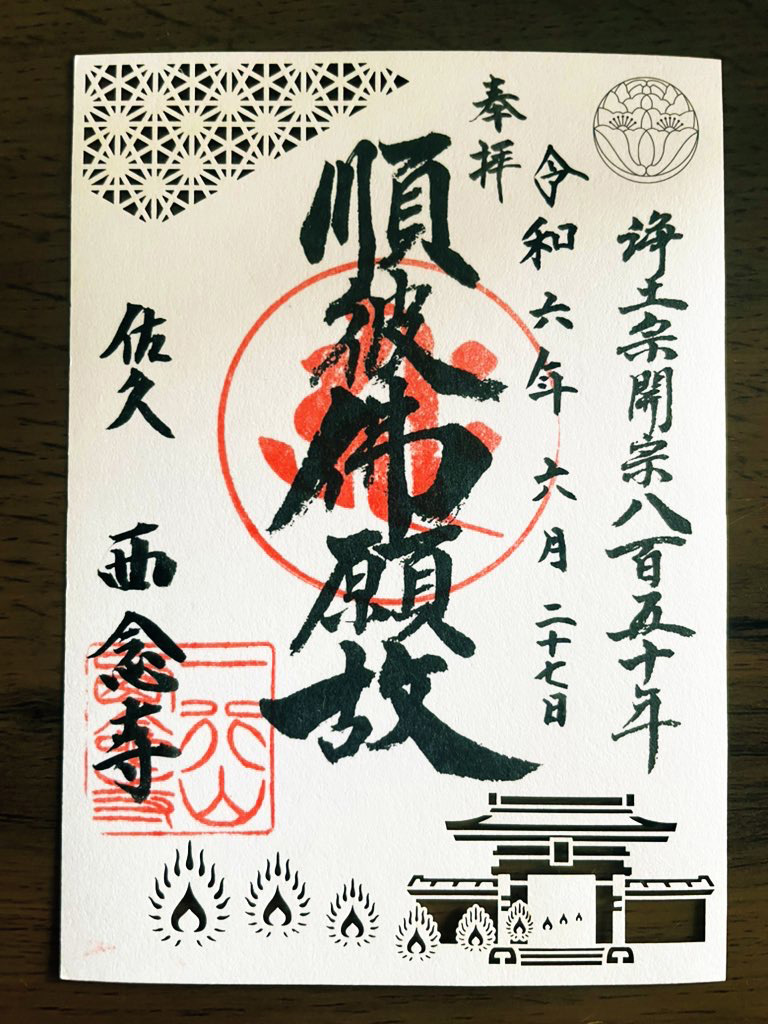 浄土宗開宗八百五十年
奉拝
令和六年六月二十七日
順彼佛願故
佐久
西念寺
一行山